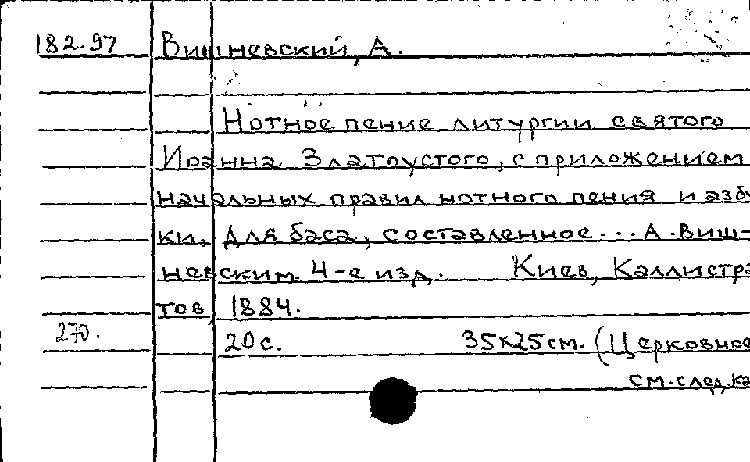 182.97 Вишневский, А.
Нотное пение литургии святого
Иоанна Златоустого, с приложением
начальных правил нотного пения и азбу
ки. Для баса, составленное... А. Виш-
невским. 4-е изд. Киев, Каллистра
тов, 1884.
270. 20 с. 35х25 см. (Церковное
см. след. ка